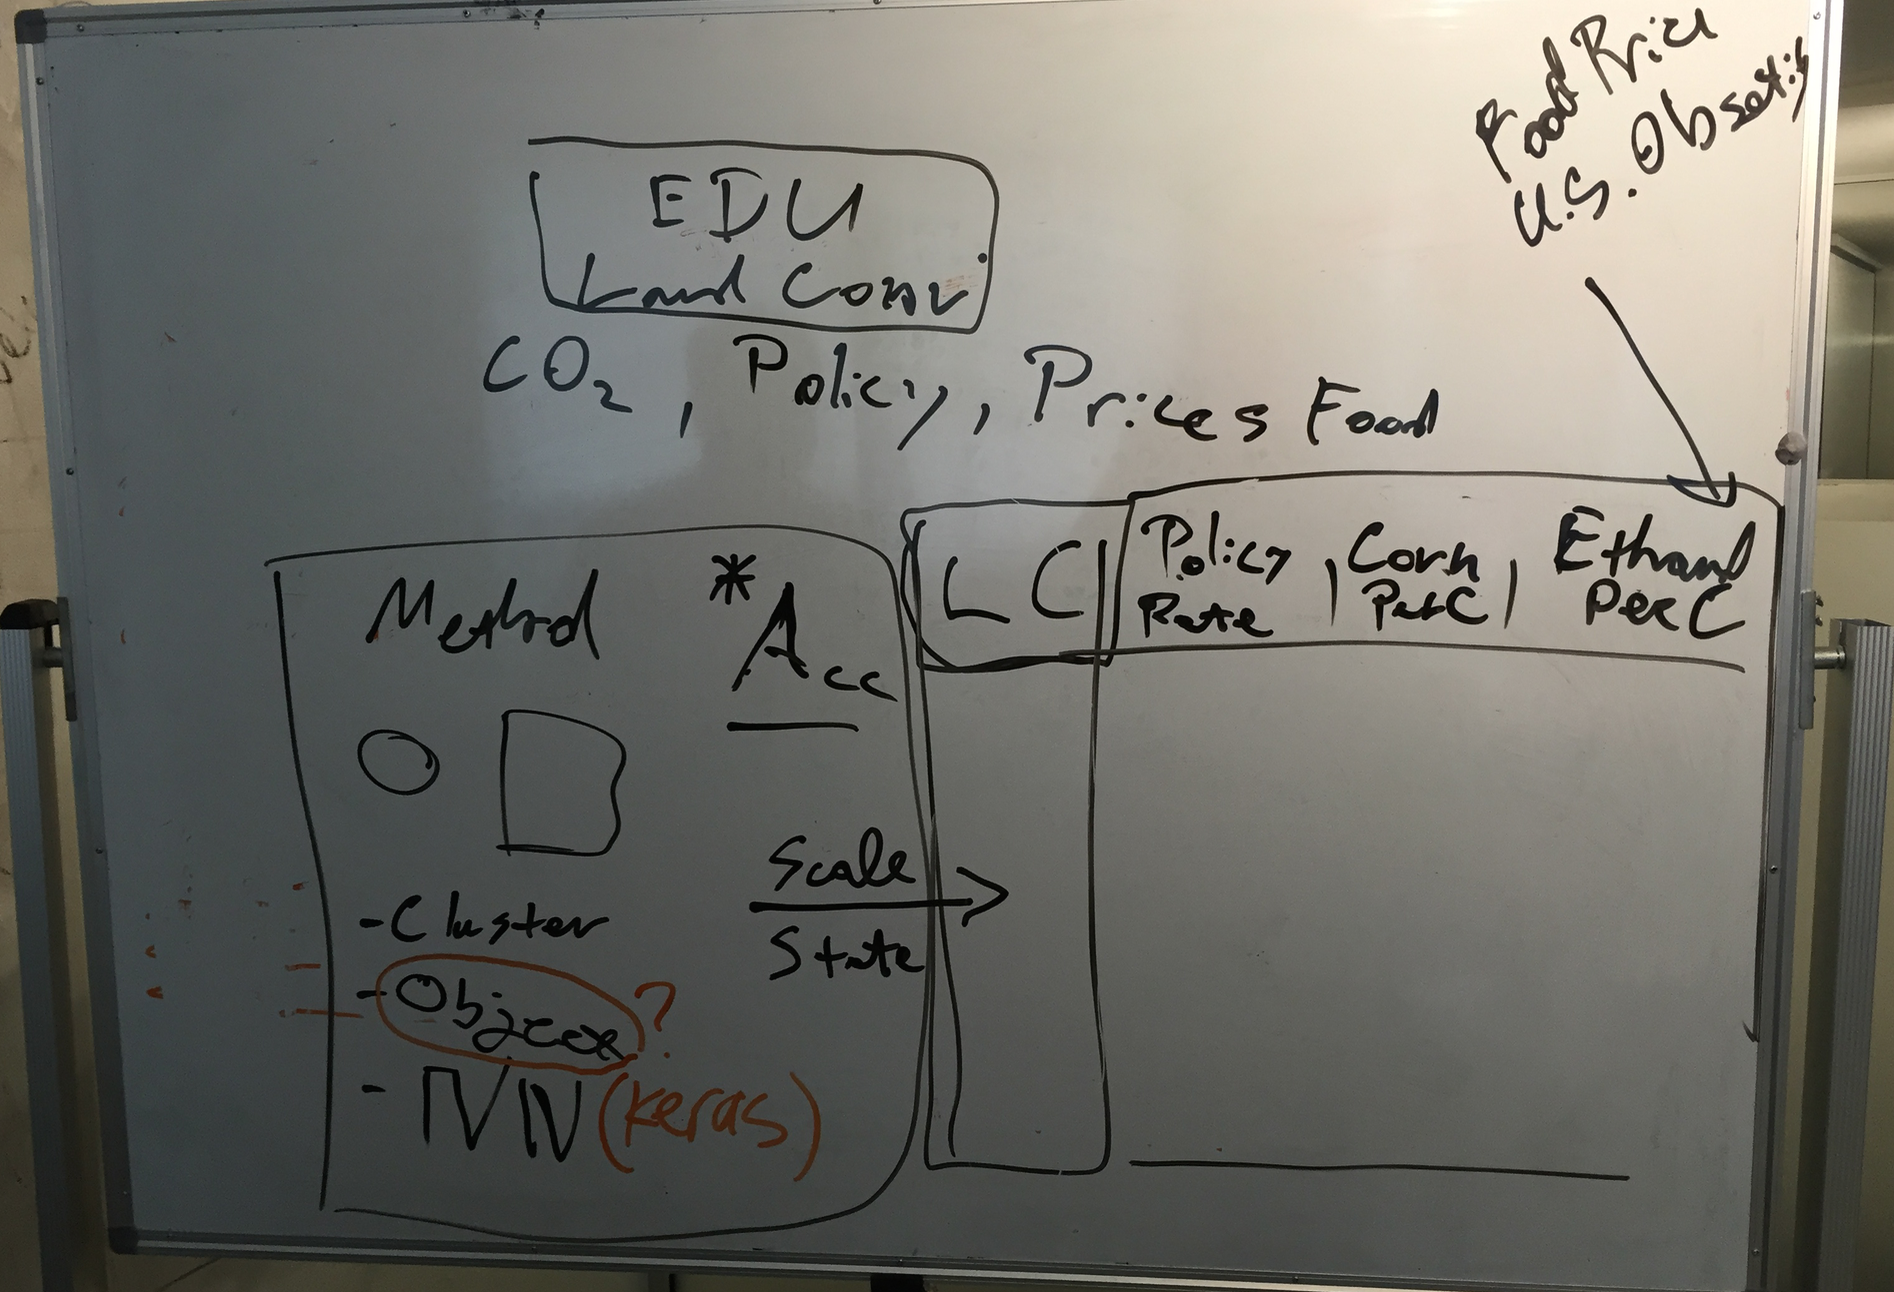 Food Price
U.S.
EDU
Land Conv
CO2, Policy, Prices Food
Method
* Acc
- Cluster
- ?
- NN (keras)
Scale
State
LC
Policy Rate | Corn Per C | Ethanol Per C